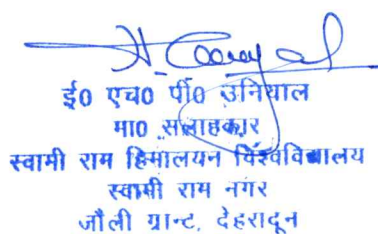 ई0 एच0 पी0 उनियाल
मा0 सलाहकार
स्वामी राम हिमालयन विश्वविद्यालय
स्वामी राम नगर
जौली ग्रान्ट, देहरादून